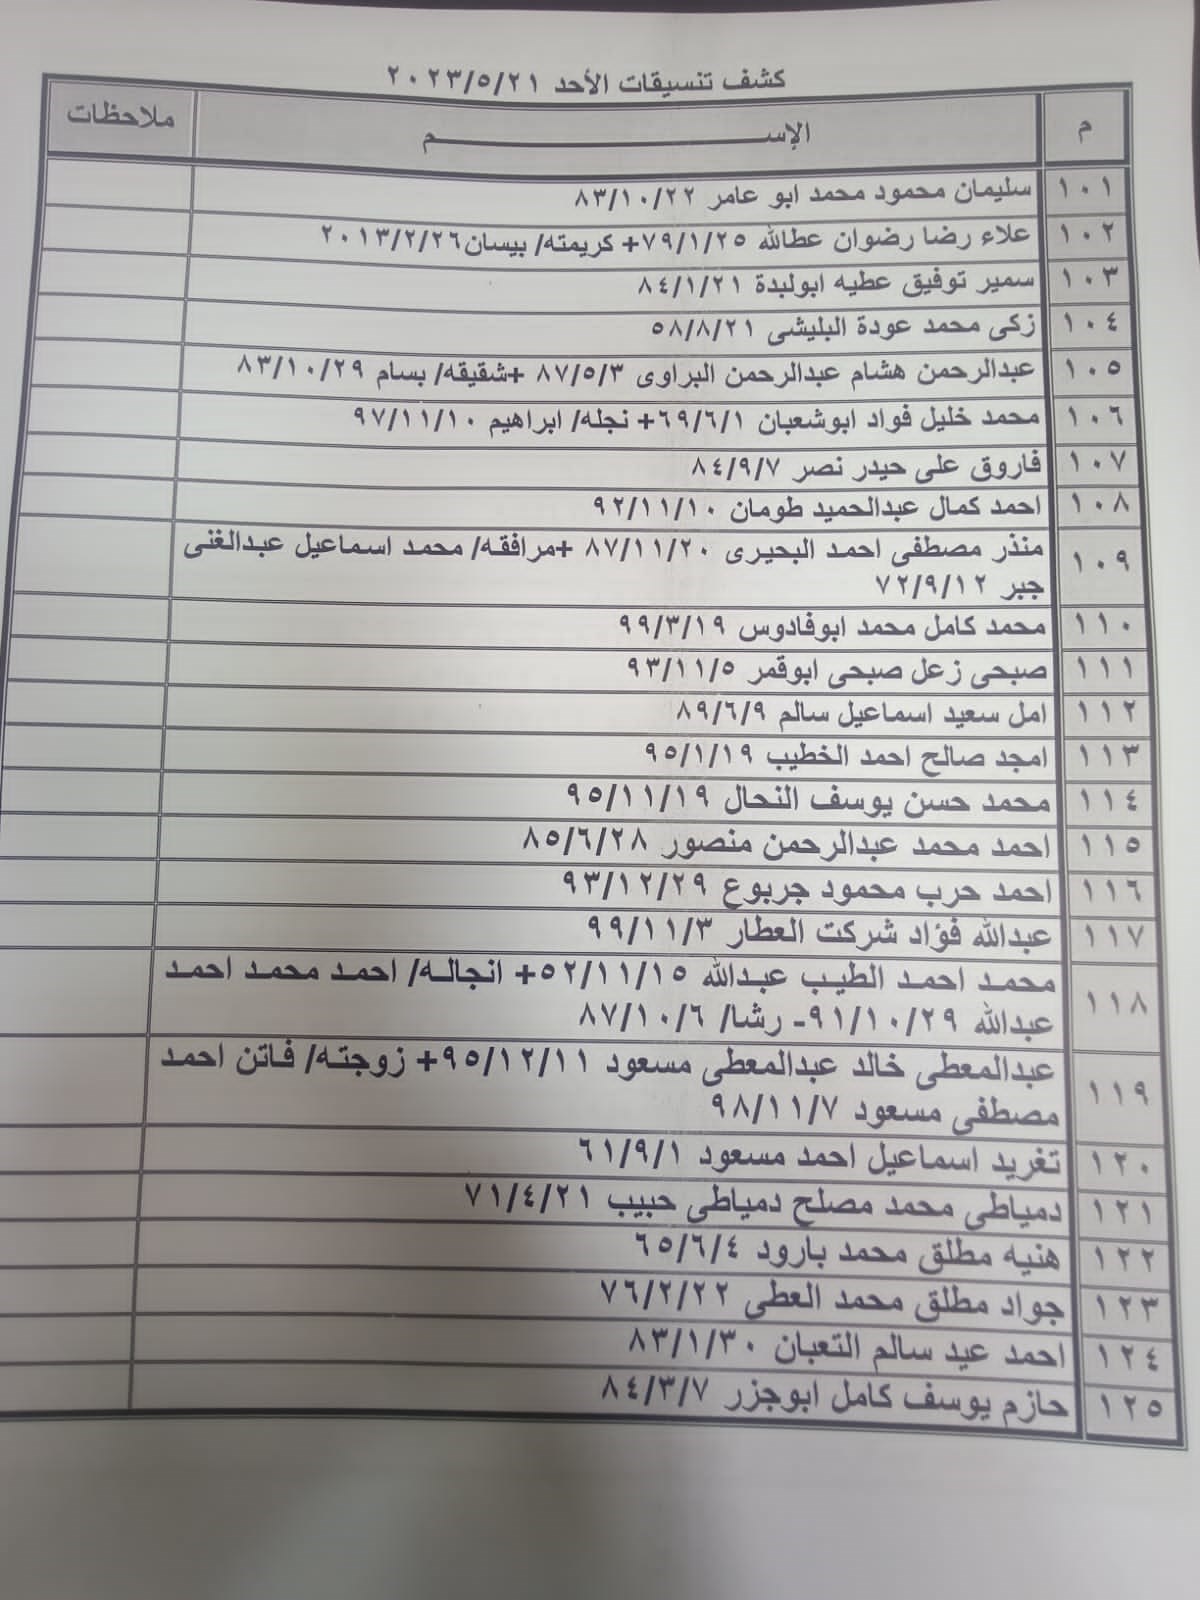 كشف تنسيقات الأحد ٢٠٢٣/٥/٢١
م الإســـــــــم ملاحظات
١٠١ سليمان محمود محمد ابو عامر ٨٣/١٠/٢٢
١٠٢ علاء رضا رضوان عطالله ٧٩/١/٢٥+ كريمته/ بيسان٢٠١٣/٢/٢٦
١٠٣ سمير توفيق عطيه ابولبدة ٨٤/١/٢١
١٠٤ زكى محمد عودة البليشى ٥٨/٨/٢١
١٠٥ عبدالرحمن هشام عبدالرحمن البراوى ٨٧/٥/٣ +شقيقه/ بسام ٨٣/١٠/٢٩
١٠٦ محمد خليل فواد ابوشعبان ٦٩/٦/١+ نجله/ ابراهيم ٩٧/١١/١٠
١٠٧ فاروق على حيدر نصر ٨٤/٩/٧
١٠٨ احمد كمال عبدالحميد طومان ٩٢/١١/١٠
١٠٩ منذر مصطفى احمد البحيرى ٨٧/١١/٢٠ +مرافقه/ محمد اسماعيل عبدالغنى
جبر ٧٢/٩/١٢
١١٠ محمد كامل محمد ابوفادوس ٩٩/٣/١٩
١١١ صبحى زعل صبحى ابوقمر ٩٣/١١/٥
١١٢ امل سعيد اسماعيل سالم ٨٩/٦/٩
١١٣ امجد صالح احمد الخطيب ٩٥/١/١٩
١١٤ محمد حسن يوسف النحال ٩٥/١١/١٩
١١٥ احمد محمد عبدالرحمن منصور ٨٥/٦/٢٨
١١٦ احمد حرب محمود جربوع ٩٣/١٢/٢٩
١١٧ عبدالله فؤاد شركت العطار ٩٩/١١/٣
١١٨ محمد احمد الطيب عبدالله ٥٢/١١/١٥+ انجاله/ احمد محمد احمد
عبدالله ٩١/١٠/٢٩- رشا/ ٨٧/١٠/٦
١١٩ عبدالمعطى خالد عبدالمعطى مسعود ٩٥/١٢/١١+ زوجته/ فاتن احمد
مصطفى مسعود ٩٨/١١/٧
١٢٠ تغريد اسماعيل احمد مسعود ٦١/٩/١
١٢١ دمياطى محمد مصلح دمياطى حبيب ٧١/٤/٢١
١٢٢ هنيه مطلق محمد بارود ٦٥/٦/٤
١٢٣ جواد مطلق محمد العطى ٧٦/٢/٢٢
١٢٤ احمد عيد سالم التعبان ٨٣/١/٣٠
١٢٥ حازم يوسف كامل ابوجزر ٨٤/٣/٧